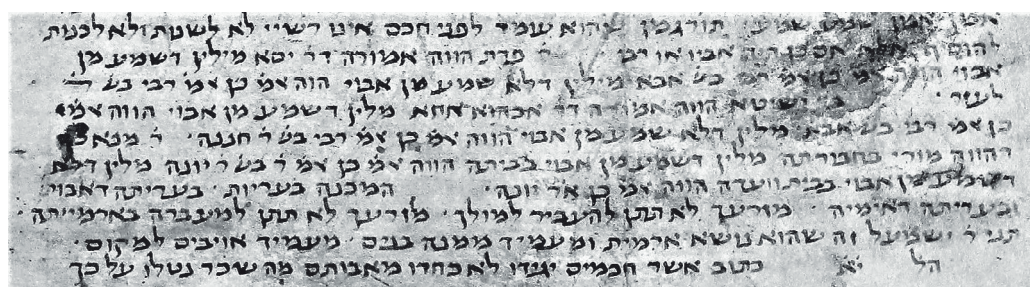 אמן שמע שמע תורגמן שהוא עומד לפני חכם אינו רשיי לא לשנות ולא לכנות
אם כן היה אביו או רבו ר פדת הווה אמורה דר יסא מילין דשמע מן
אבוי הווה אמ׳ כן אמ׳ רבי בש׳ אבא מילין דלא שמע מן אבוי הוה אמ׳ כן אמ׳ רבי בש׳ ר׳
לעזר · הווה אמורה דר אבהוא אחא מלין דשמע מן אבוי הווה אמ׳
כן אמ׳ רבי בש׳ אבא מלין דלא שמע מן אבוי הווה אמ׳ כן אמ׳ רבי בש׳ ר׳ חננה · ר מנא
דהווה מורי בחבורתה מלין דשמע מן אבוי בביתה הווה אמ׳ כן אמ׳ ר׳ בש׳ ר׳ יונה מלין דלא
דשמע מן אבוי בבית וועדה הווה אמ׳ כן אר יונה · המכנה בעריות · בעריתה דאבוי
ובעריתה דאימיה · מזרעך לא תתן להעביר למולך · מזרעך לא תתן למעברה בארמייתה ·
תני ר׳ ישמעל זה שהוא נושא ארמית ומעמיד ממנה בנים · מעמיד אויבים למקום ·
הל יא כתוב אשר חכמים יגידו לא כחדו מאבותם מה שכר נטלו על כך